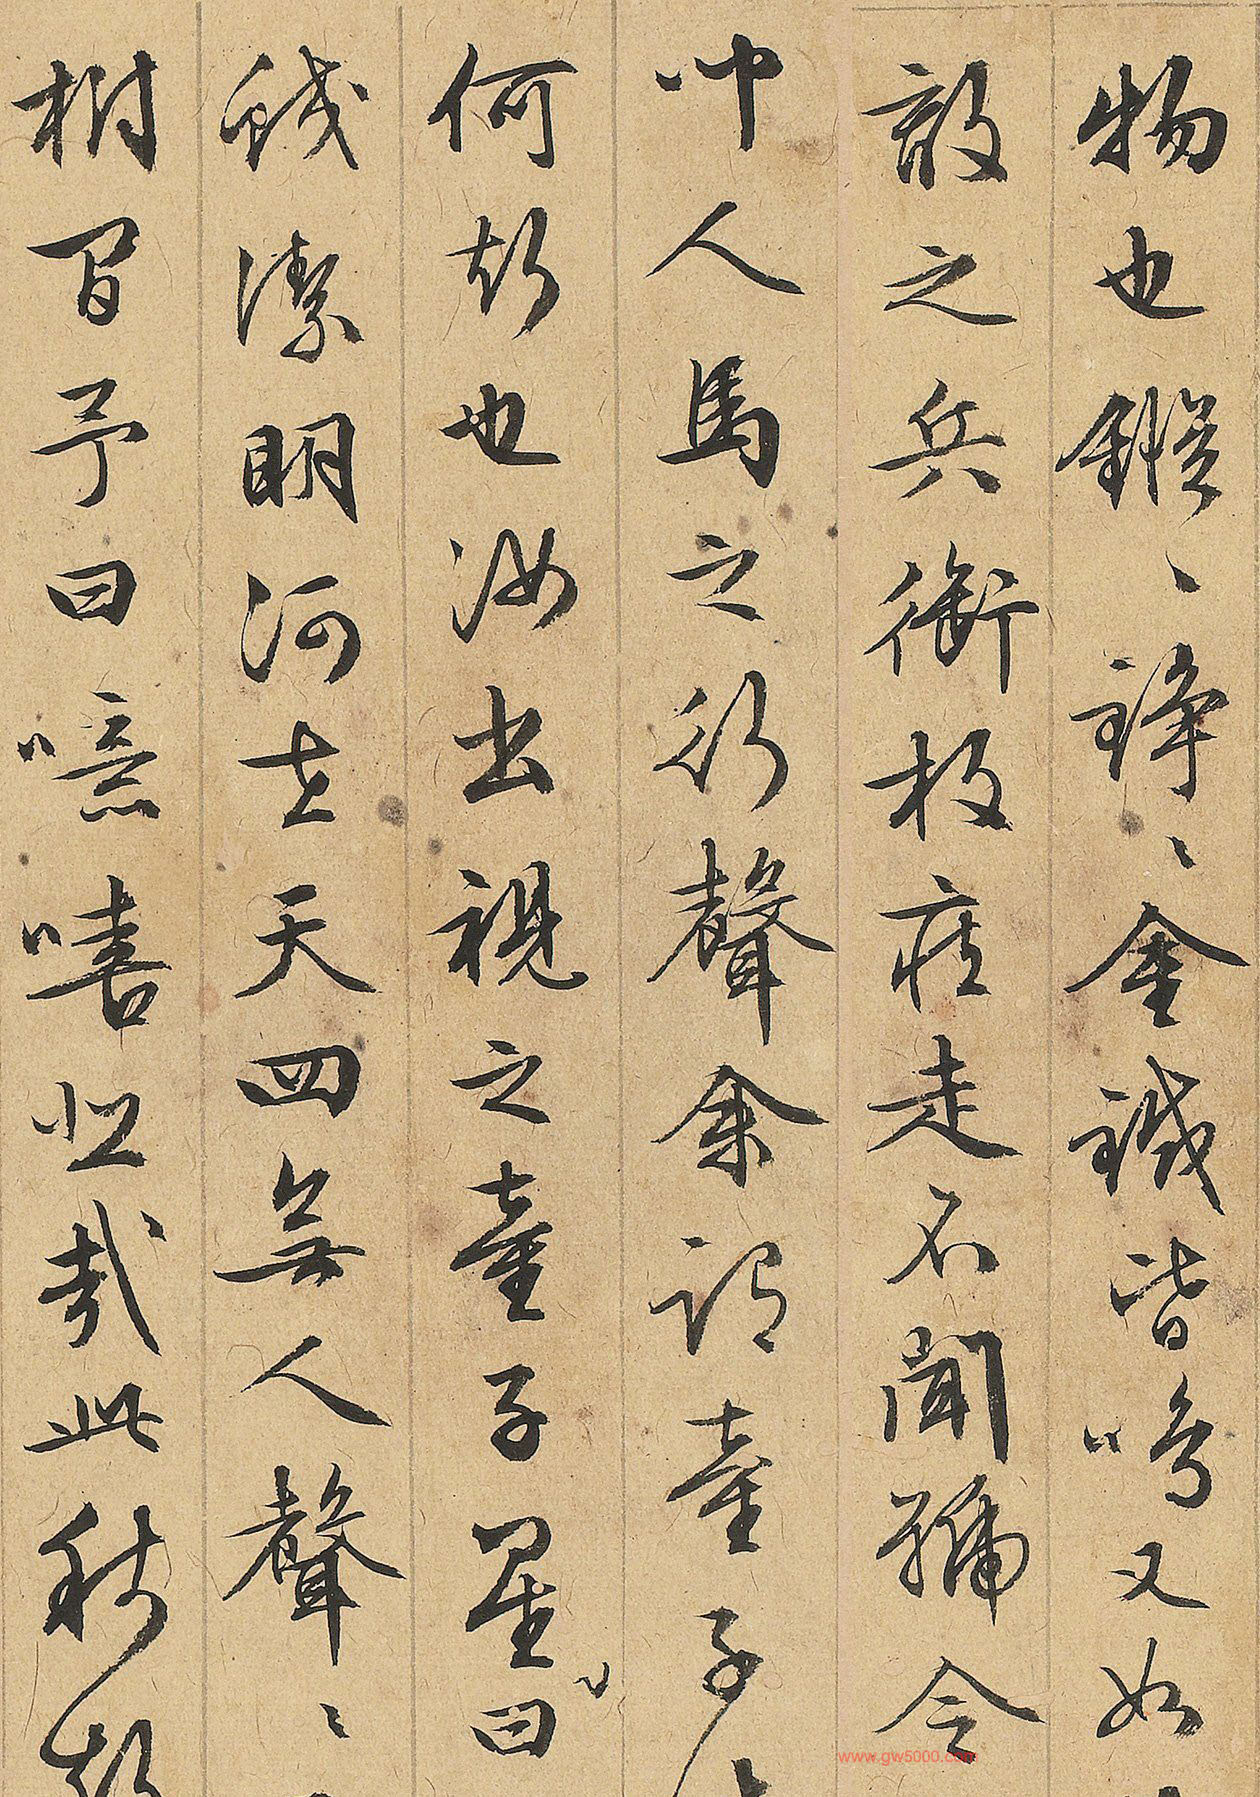 物也鏦〻錚〻金鐵皆鳴又如
敵之兵銜枚疾走不聞號令
聞人馬之行聲余謂童子
何聲也汝出視之童子星曰
皎潔明河在天四無人聲〻
樹間予曰噫嘻悲哉此秋聲
www.gw5000.com